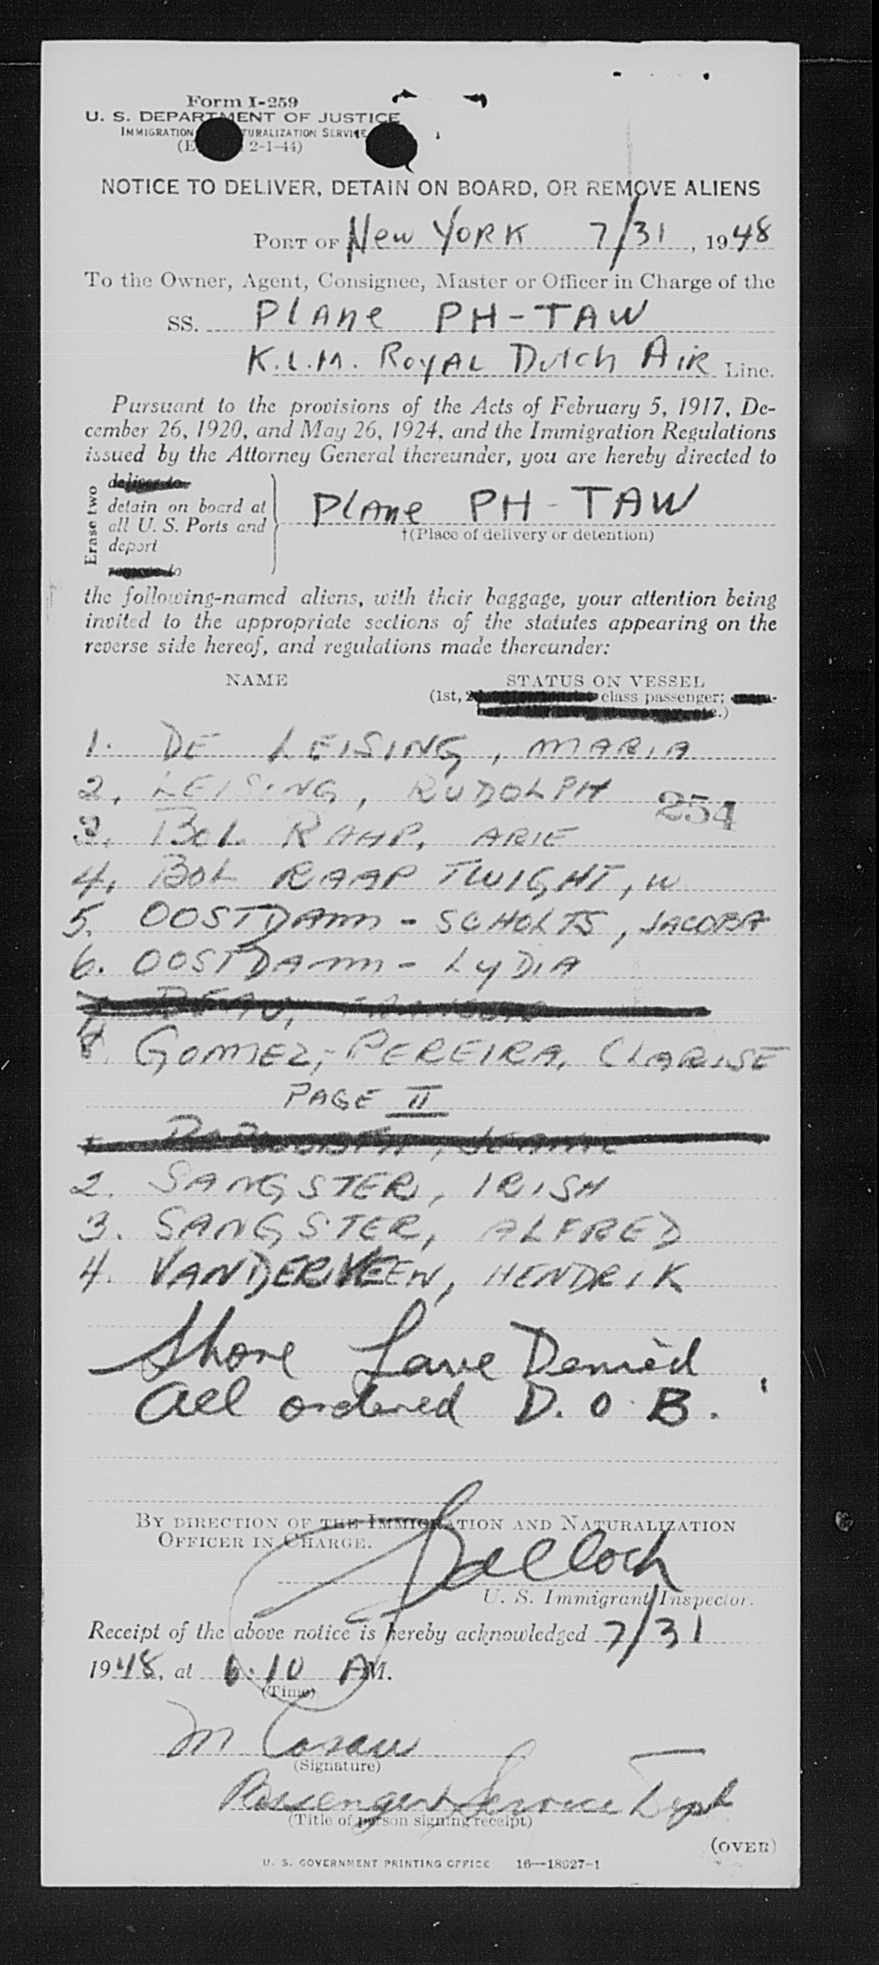 Form I-259
U. S. DEPARTMENT OF JUSTICE
IMMIGRATION NATURALIZATION SERVICE
2-1-44)
NOTICE TO DELIVER, DETAIN ON BOARD, OR REMOVE ALIENS
PORT OF New YORK 7/31, 1948
To the Owner, Agent, Consignee, Master or Officer in Charge of the
SS. Plane PH-TAW
K.L.M. ROYAL Dutch AIR Line.
Pursuant to the provisions of the Acts of February 5, 1917, De-
cember 26, 1920, and May 26, 1924, and the Immigration Regulations
issued by the Attorney General thereunder, you are hereby directed to
Erase two
deliver to
detain on board at
all U. S. Ports and
deport
remove to
Plane PH-TAW
†(Place of delivery or detention)
the following-named aliens, with their baggage, your attention being
invited to the appropriate sections of the statutes appearing on the
reverse side hereof, and regulations made thereunder:
NAME STATUS ON VESSEL
(1st, class passenger;
1. DE LEISING, MARIA
2. LEISING, RUDOLPH 254
3. BOL RAAP, ARIE
4. BOL RAAP TWIGHT, W
5. OOSTDAMM - SCHOLTS, JACOBA
6. OOSTDAMM - LYDIA
8. GOMEZ, - PEREIRA, CLARISE
PAGE II
2. SANGSTER, IRISH
3. SANGSTER, ALFRED
4. VANDERVEEN, HENDRIK
Shore Leave Denied
all ordered D.O.B.
BY DIRECTION OF THE IMMIGRATION AND NATURALIZATION
OFFICER IN CHARGE.
U. S. Immigrant Inspector.
Receipt of the above notice is hereby acknowledged 7/31
1948, at 6:10 AM.
(Time)
M
(Signature)
Passenger Service Dept
(Title of person signing receipt)
(OVER)
U. S. GOVERNMENT PRINTING OFFICE 16—18027-1